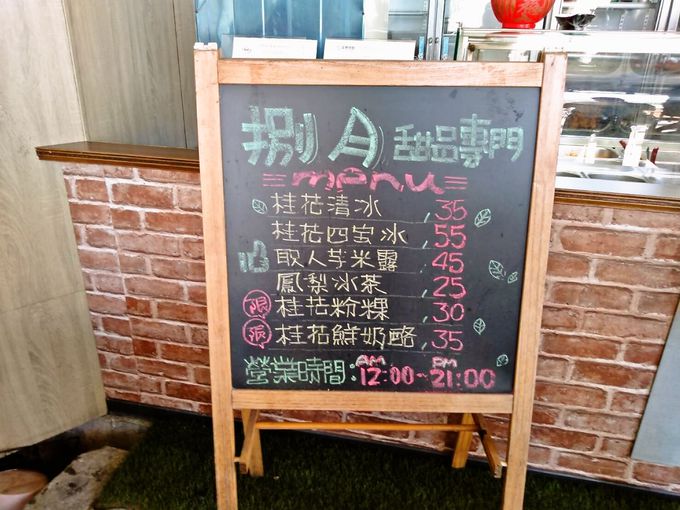 捌月 甜品專門
menu
桂花清冰 35
桂花四宝冰 55
取人芋米露 45
鳳梨冰茶 25
限 桂花粉粿 30
限 桂花鮮奶酪 35
營業時間: AM 12:00~PM 21:00